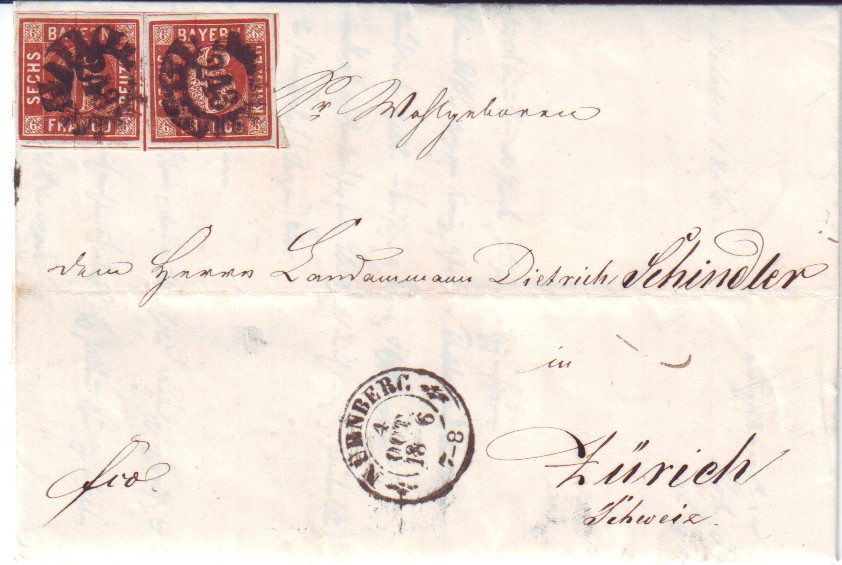 6 BAYERN 6
SECHS KREUZER
6 FRANCO 6
6 BAYERN 6
SECHS KREUZER
Sr Wohlgeboren
dem Herrn Landammann Dietrich Schindler
in
NÜRNBERG
4
OCT
18 6
7-8
fco.
Zürich
Schweiz.